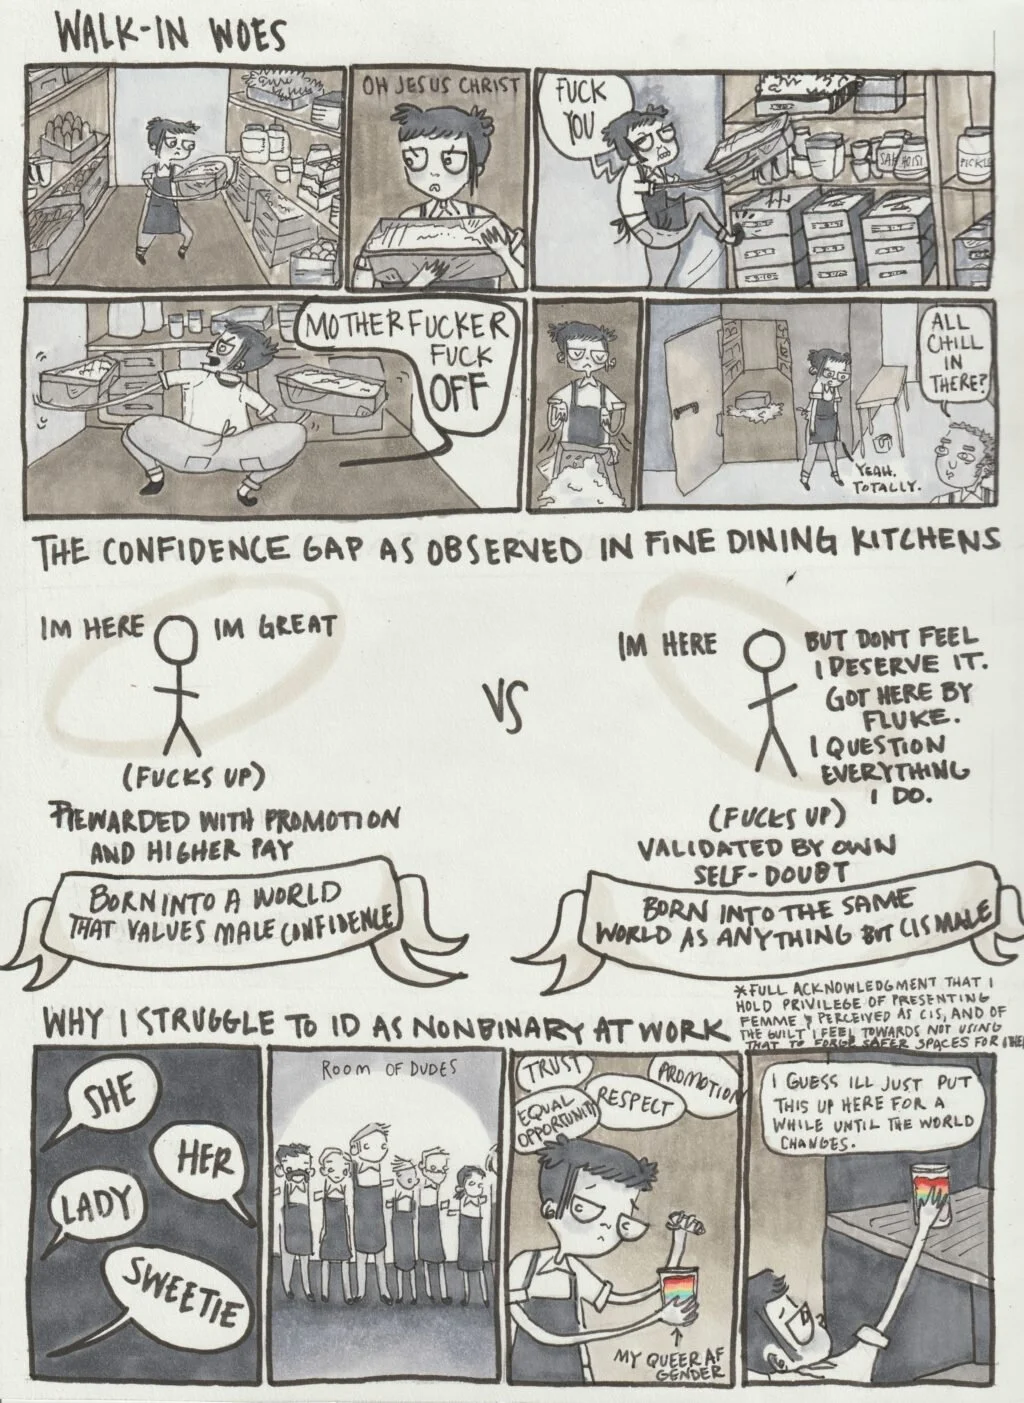 WALK-IN WOES
OH JESUS CHRIST
FUCK
YOU
PICKLE
MOTHERFUCKER
FUCK
OFF
ALL
CHILL
IN
THERE?
YEAH.
TOTALLY.
THE CONFIDENCE GAP AS OBSERVED IN FINE DINING KITCHENS
IM HERE
IM GREAT
(FUCKS UP)
REWARDED WITH PROMOTION
AND HIGHER PAY
BORN INTO A WORLD
THAT VALUES MALE CONFIDENCE
VS
IM HERE
BUT DONT FEEL
I DESERVE IT.
GOT HERE BY
FLUKE.
I QUESTION
EVERYTHING
I DO.
(FUCKS UP)
VALIDATED BY OWN
SELF-DOUBT
BORN INTO THE SAME
WORLD AS ANYTHING BUT CIS MALE
*FULL ACKNOWLEDGMENT THAT I
HOLD PRIVILEGE OF PRESENTING
FEMME & PERCEIVED AS CIS, AND OF
THE GUILT I FEEL TOWARDS NOT USING
THAT TO FORGE SAFER SPACES FOR
WHY I STRUGGLE TO ID AS NONBINARY AT WORK
SHE
HER
LADY
SWEETIE
ROOM OF DUDES
TRUST
PROMOTION
EQUAL
OPPORTUNITY
RESPECT
MY QUEER AF
GENDER
I GUESS ILL JUST PUT
THIS UP HERE FOR A
WHILE UNTIL THE WORLD
CHANGES.